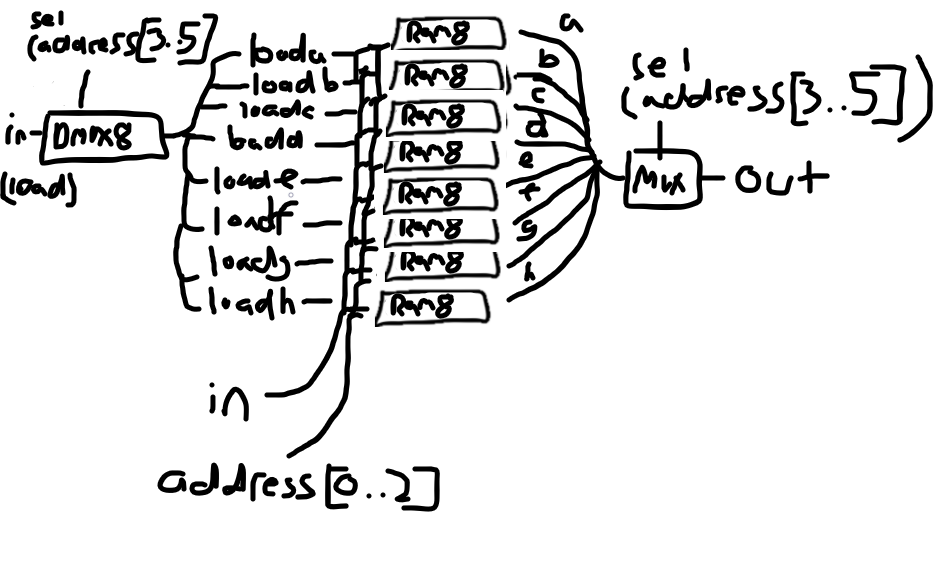 sel
(address[3..5]
in
Dmux8
(load)
loada
loadb
loadc
loadd
loade
loadf
loadg
loadh
Ram8
Ram8
Ram8
Ram8
Ram8
Ram8
Ram8
Ram8
a
b
c
d
e
f
g
h
sel
(address[3..5])
Mux
out
in
address[0..2]